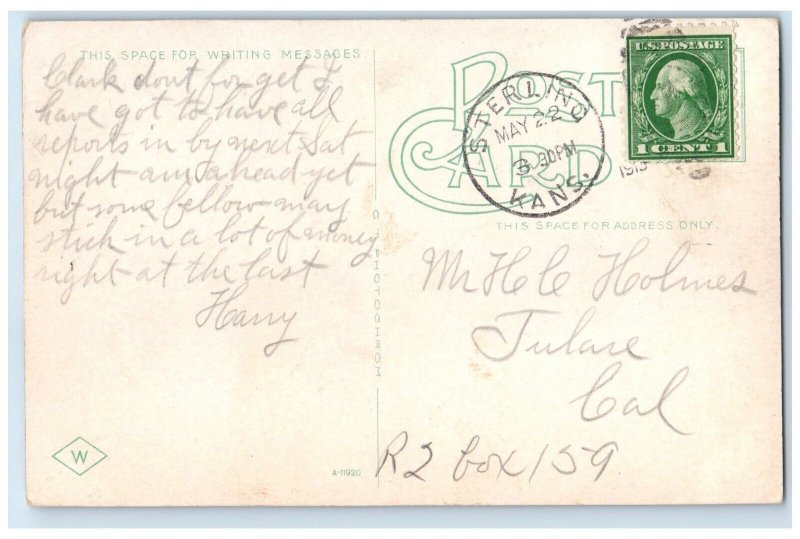 THIS SPACE FOR WRITING MESSAGES.
Clark dont forget I
have got to have all
reports in by next Sat
night am ahead yet
but some fellow may
stick in a lot of money
right at the last
Harry
W
A-11920
PHOTOCHROM
POST CARD
STERLING
MAY 22
3 30PM
KANS.
1913
U.S. POSTAGE
1 CENT 1
THIS SPACE FOR ADDRESS ONLY.
Mr H C Holmes
Tulare
Cal
R2 box 159